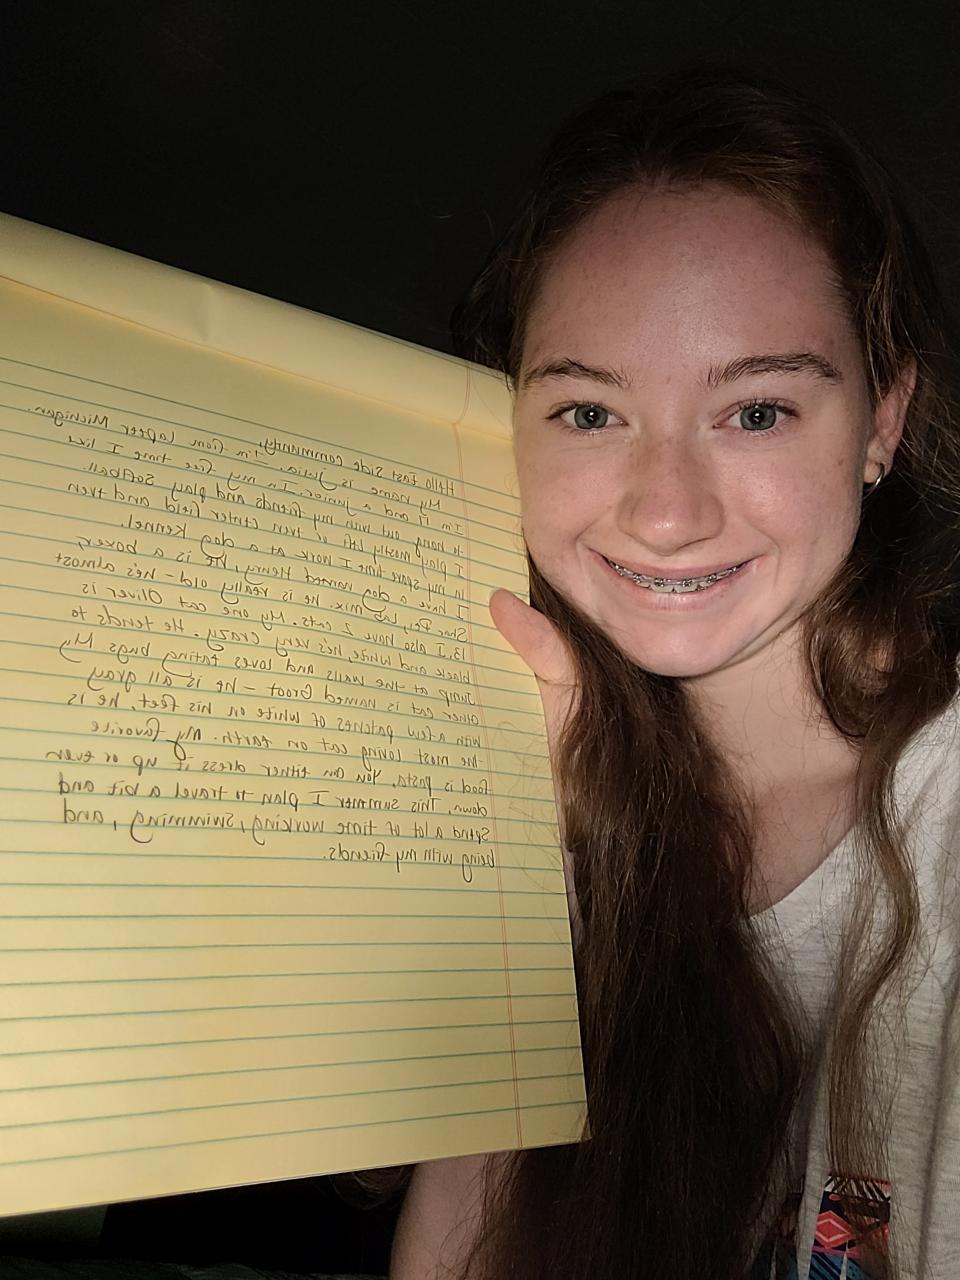 Hello East Side community
My name is Julia. I'm from Lapeer Michigan.
I'm 17 and a junior. In my free time I like
to hang out with my friends and play Softball.
I play mostly Lft or even center field and then
in my spare time I work at a dog kennel.
I have a dog named Henry, he is a boxer,
Shar Pey, Lab mix. he is really old - he's almost
13. I also have 2 cats. My one cat Oliver is
black and white, he's very crazy. He tends to
Jump at the walls and loves eating bugs My
other cat is named Groot - he is all gray
with a few patches of white on his feet, he is
the most loving cat on earth. My favorite
food is pasta, you can either dress it up or even
down. This summer I plan to travel a bit and
spend a lot of time working, swimming, and
being with my friends.